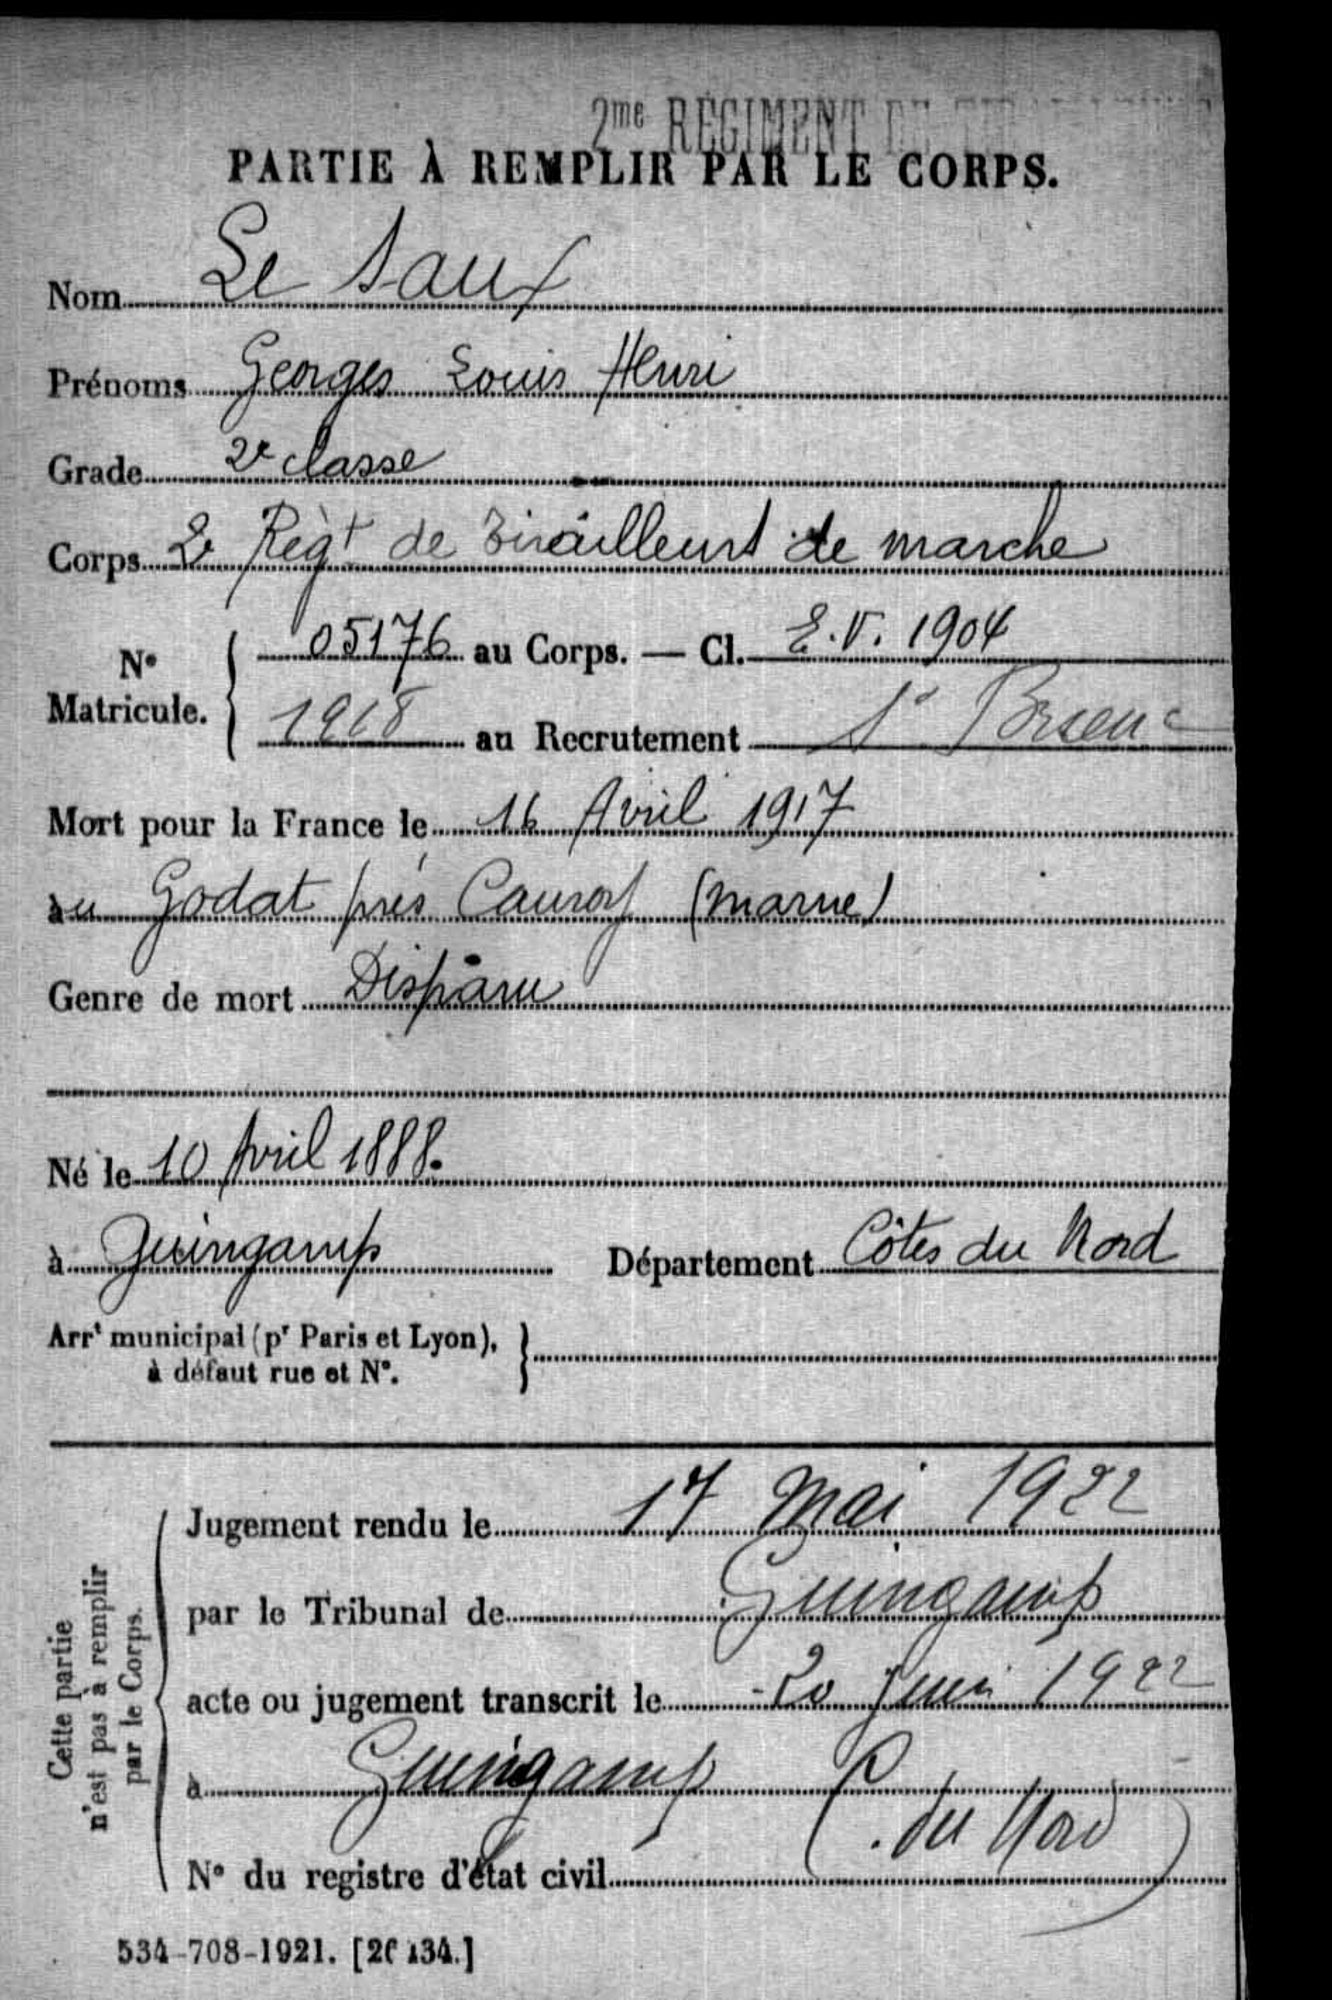 2me RÉGIMENT DE
PARTIE À REMPLIR PAR LE CORPS.
Nom Le Saux
Prénoms Georges Louis Henri
Grade 2e classe
Corps 2e Règt de Tirailleurs de marche
No Matricule. { 05176 au Corps. — Cl. E.V. 1904
1968 au Recrutement St Brieuc
Mort pour la France le 16 Avril 1917
au Godat près Cauroy (Marne)
Genre de mort Disparu
Né le 10 Avril 1888.
à Guingamp Département Côtes du Nord
Arrt municipal (pr Paris et Lyon),
à défaut rue et No.
Cette partie n'est pas à remplir par le Corps.
Jugement rendu le 17 Mai 1922
par le Tribunal de Guingamp
acte ou jugement transcrit le 20 Juin 1922
à Guingamp (C. du Nord)
No du registre d'état civil
534-708-1921. [26134.]